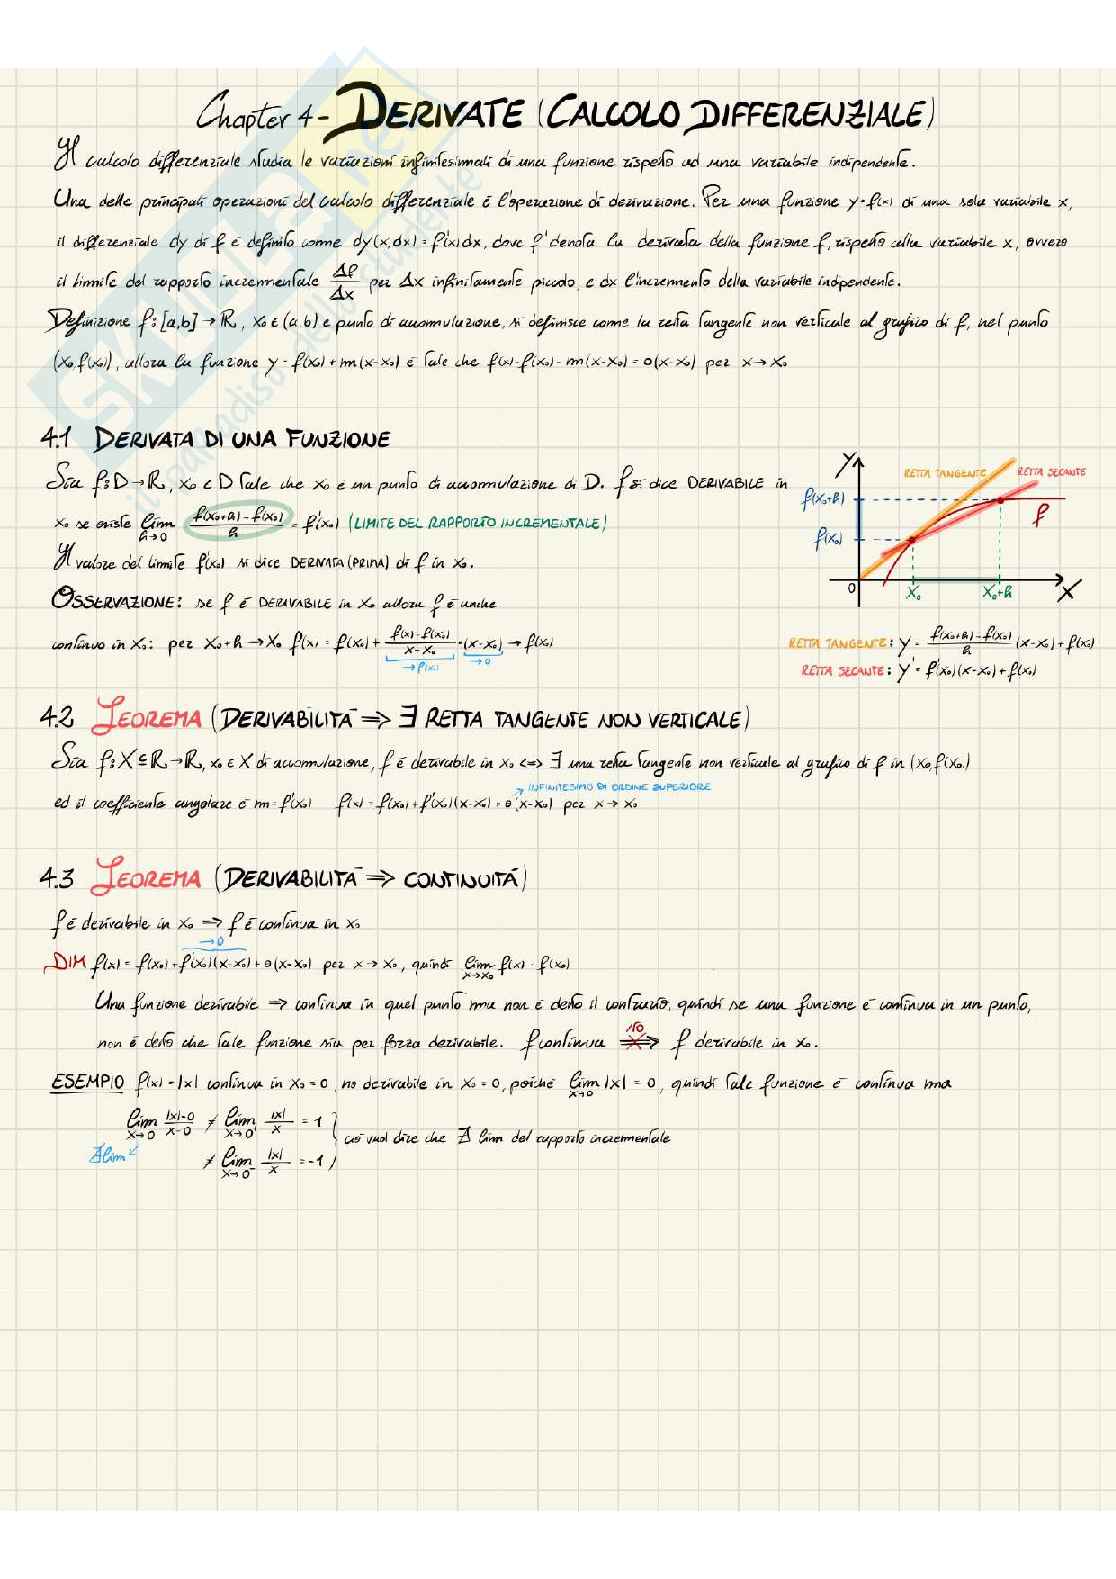 Chapter 4 - DERIVATE (CALCOLO DIFFERENZIALE)
Il calcolo differenziale studia le variazioni infinitesimali di una funzione rispetto ad una variabile indipendente.
Una delle principali operazioni del calcolo differenziale è l'operazione di derivazione. Per una funzione y=f(x) di una sola variabile x,
il differenziale dy di f è definito come dy(x,dx)=f'(x)dx, dove f' denota la derivata della funzione f, rispetto alla variabile x, ovvero
il limite del rapporto incrementale Δf/Δx per Δx infinitamente piccolo, e dx l'incremento della variabile indipendente.
Definizione f:[a,b]→ℝ, x₀∈(a,b) è punto di accumulazione, si definisce come la retta tangente non verticale al grafico di f, nel punto
(x₀,f(x₀)), allora la funzione y=f(x₀)+m(x-x₀) è tale che f(x)-f(x₀)-m(x-x₀)=o(x-x₀) per x→x₀
4.1 DERIVATA DI UNA FUNZIONE
Sia f:D→ℝ, x₀∈D tale che x₀ è un punto di accumulazione di D. f si dice DERIVABILE in
x₀ se esiste lim h→0 (f(x₀+h)-f(x₀))/h = f'(x₀) (LIMITE DEL RAPPORTO INCREMENTALE)
Il valore del limite f'(x₀) si dice DERIVATA (PRIMA) di f in x₀.
OSSERVAZIONE: se f è DERIVABILE in x₀ allora f è anche
continua in x₀: per x₀+h→x₀ f(x) = f(x₀) + (f(x)-f(x₀))/(x-x₀) · (x-x₀) → f(x₀)
→f'(x₀) →0
Y
RETTA TANGENTE
RETTA SECANTE
f(x₀+h)
f
f(x₀)
0 x₀ x₀+h X
RETTA TANGENTE: y = (f(x₀+h)-f(x₀))/h (x-x₀)+f(x₀)
RETTA SECANTE: y = f'(x₀)(x-x₀)+f(x₀)
4.2 TEOREMA (DERIVABILITÀ => ∃ RETTA TANGENTE NON VERTICALE)
Sia f:X⊆ℝ→ℝ, x₀∈X di accumulazione, f è derivabile in x₀ <=> ∃ una retta tangente non verticale al grafico di f in (x₀,f(x₀))
→ INFINITESIMO DI ORDINE SUPERIORE
ed il coefficiente angolare è m=f'(x₀) f(x)=f(x₀)+f'(x₀)(x-x₀)+o(x-x₀) per x→x₀
4.3 TEOREMA (DERIVABILITÀ => CONTINUITÀ)
f è derivabile in x₀ => f è continua in x₀
→0
DIM f(x)=f(x₀)+f'(x₀)(x-x₀)+o(x-x₀) per x→x₀, quindi lim x→x₀ f(x)=f(x₀)
Una funzione derivabile => continua in quel punto ma non è detto il contrario, quindi se una funzione è continua in un punto,
non è detto che tale funzione sia per forza derivabile. f continua NO => f derivabile in x₀.
ESEMPIO f(x)=|x| continua in x₀=0, no derivabile in x₀=0, poiché lim x→0 |x|=0, quindi tale funzione è continua ma
lim x→0 (|x|-0)/(x-0) ≠ lim x→0⁺ |x|/x = 1
ciò vuol dire che ∄ lim del rapporto incrementale
∄lim
≠ lim x→0⁻ |x|/x = -1